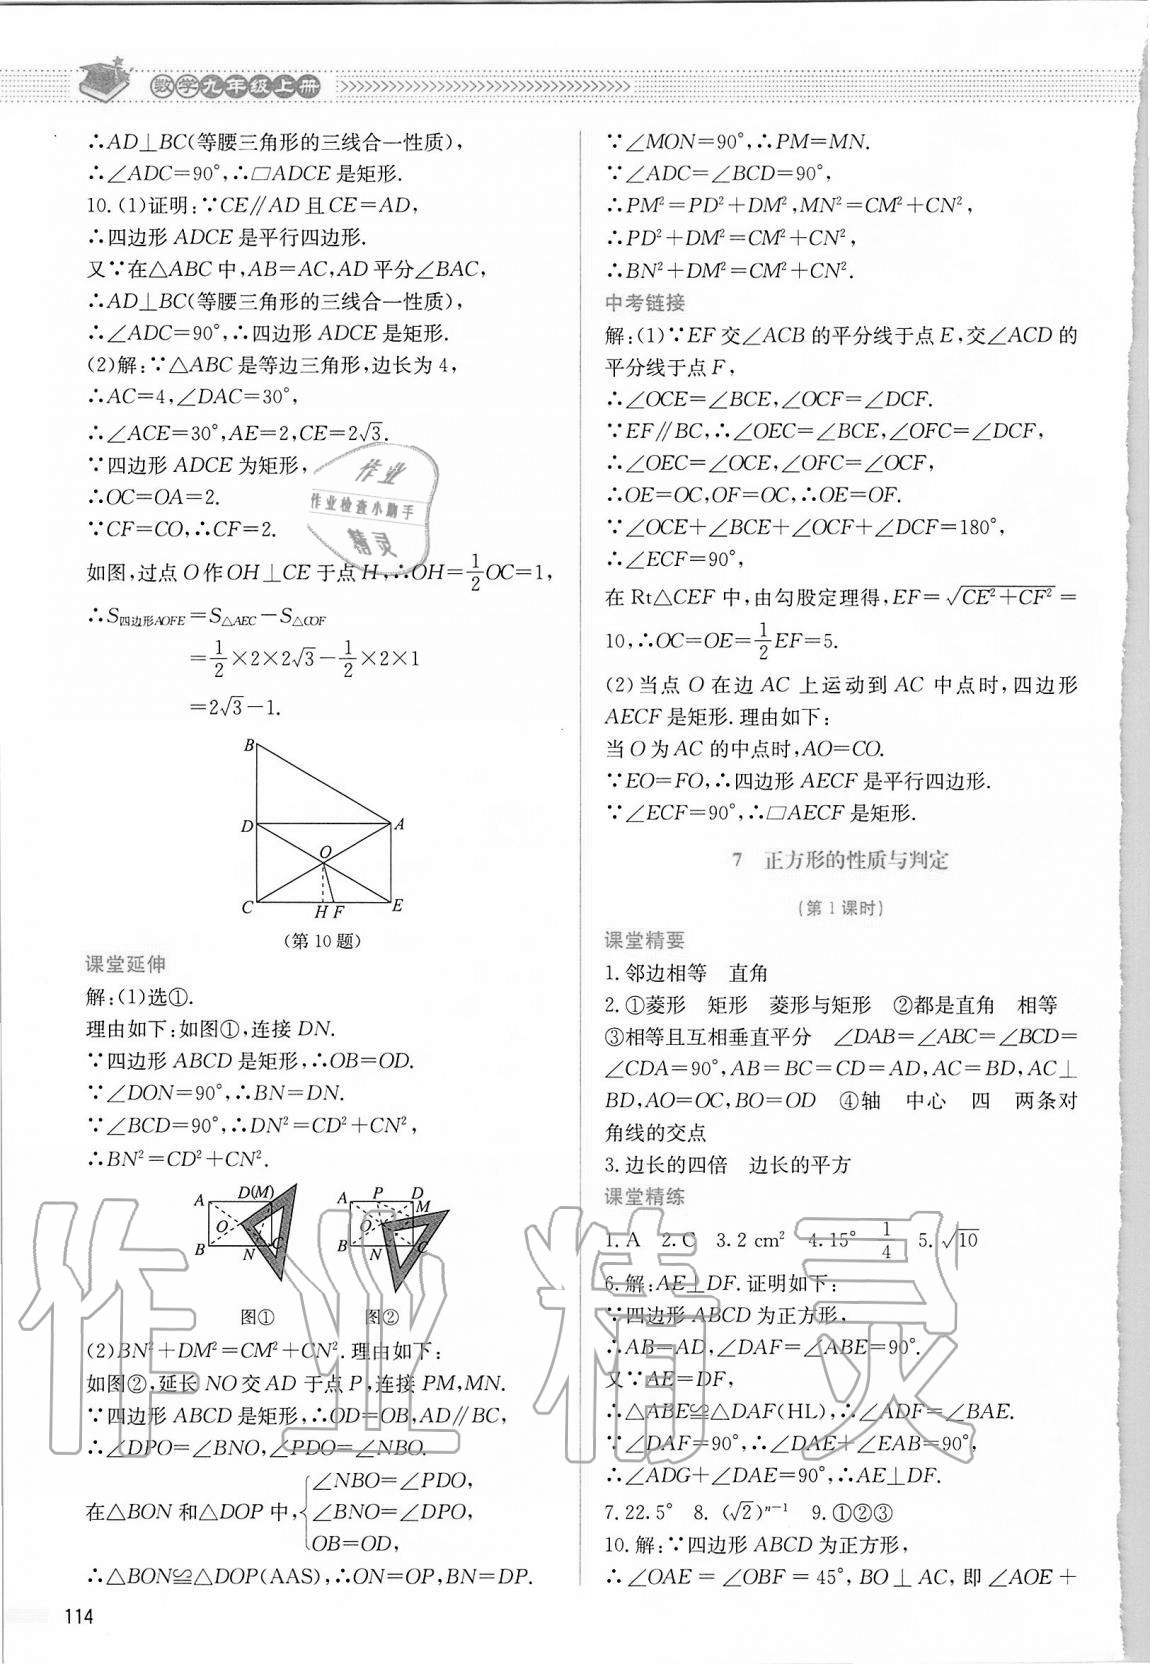 数学九年级上册
∴AD⊥BC(等腰三角形的三线合一性质),
∴∠ADC=90°,∴□ADCE 是矩形.
10.(1)证明:∵CE∥AD 且 CE=AD,
∴四边形 ADCE 是平行四边形.
又∵在△ABC 中,AB=AC,AD 平分∠BAC,
∴AD⊥BC(等腰三角形的三线合一性质),
∴∠ADC=90°,∴四边形 ADCE 是矩形.
(2)解:∵△ABC 是等边三角形,边长为 4,
∴AC=4,∠DAC=30°,
∴∠ACE=30°,AE=2,CE=2√3.
∵四边形 ADCE 为矩形,
∴OC=OA=2.
∵CF=CO,∴CF=2.
如图,过点 O 作 OH⊥CE 于点 H,∴OH=1/2 OC=1,
∴S四边形AOFE=S△AEC−S△COF
=1/2×2×2√3−1/2×2×1
=2√3−1.
B
D A
O
C H F E
(第 10 题)
课堂延伸
解:(1)选①.
理由如下:如图①,连接 DN.
∵四边形 ABCD 是矩形,∴OB=OD.
∵∠DON=90°,∴BN=DN.
∵∠BCD=90°,∴DN²=CD²+CN²,
∴BN²=CD²+CN².
A D(M) A P D
O O M
B N C B N C
图① 图②
(2)BN²+DM²=CM²+CN².理由如下:
如图②,延长 NO 交 AD 于点 P,连接 PM,MN.
∵四边形 ABCD 是矩形,∴OD=OB,AD∥BC,
∴∠DPO=∠BNO,∠PDO=∠NBO.
∠NBO=∠PDO,
在△BON 和△DOP 中,{∠BNO=∠DPO,
OB=OD,
∴△BON≌△DOP(AAS),∴ON=OP,BN=DP.
114
∵∠MON=90°,∴PM=MN.
∵∠ADC=∠BCD=90°,
∴PM²=PD²+DM²,MN²=CM²+CN²,
∴PD²+DM²=CM²+CN²,
∴BN²+DM²=CM²+CN².
中考链接
解:(1)∵EF 交∠ACB 的平分线于点 E,交∠ACD 的
平分线于点 F,
∴∠OCE=∠BCE,∠OCF=∠DCF.
∵EF∥BC,∴∠OEC=∠BCE,∠OFC=∠DCF,
∴∠OEC=∠OCE,∠OFC=∠OCF,
∴OE=OC,OF=OC,∴OE=OF.
∵∠OCE+∠BCE+∠OCF+∠DCF=180°,
∴∠ECF=90°,
在 Rt△CEF 中,由勾股定理得,EF=√(CE²+CF²)=
10,∴OC=OE=1/2 EF=5.
(2)当点 O 在边 AC 上运动到 AC 中点时,四边形
AECF 是矩形.理由如下:
当 O 为 AC 的中点时,AO=CO.
∵EO=FO,∴四边形 AECF 是平行四边形.
∵∠ECF=90°,∴□AECF 是矩形.
7 正方形的性质与判定
(第 1 课时)
课堂精要
1.邻边相等 直角
2.①菱形 矩形 菱形与矩形 ②都是直角 相等
③相等且互相垂直平分 ∠DAB=∠ABC=∠BCD=
∠CDA=90°,AB=BC=CD=AD,AC=BD,AC⊥
BD,AO=OC,BO=OD ④轴 中心 四 两条对
角线的交点
3.边长的四倍 边长的平方
课堂精练
1.A 2.C 3.2 cm² 4.15° 1/4 5.√10
6.解:AE⊥DF.证明如下:
∵四边形 ABCD 为正方形,
∴AB=AD,∠DAF=∠ABE=90°.
又∵AE=DF,
∴△ABE≌△DAF(HL),∴∠ADF=∠BAE.
∵∠DAF=90°,∴∠DAE+∠EAB=90°,
∴∠ADG+∠DAE=90°,∴AE⊥DF.
7.22.5° 8.(√2)ⁿ⁻¹ 9.①②③
10.解:∵四边形 ABCD 为正方形,
∴∠OAE=∠OBF=45°,BO⊥AC,即∠AOE+
作业
作业检查小助手
精灵
作业精灵